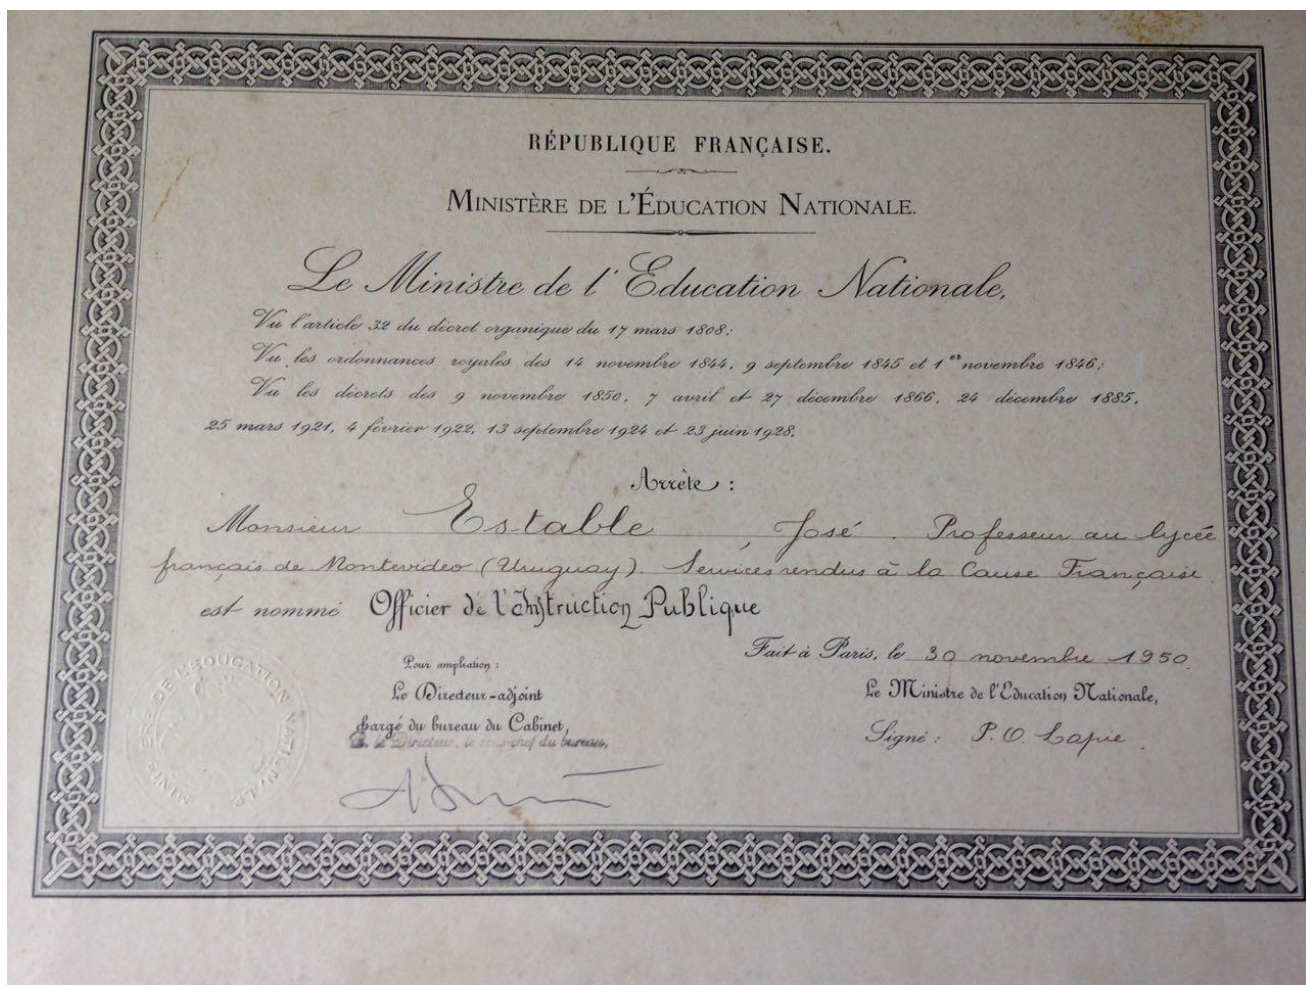 RÉPUBLIQUE FRANÇAISE.
MINISTÈRE DE L'ÉDUCATION NATIONALE.
Le Ministre de l'Education Nationale,
Vu l'article 32 du décret organique du 17 mars 1808;
Vu les ordonnances royales des 14 novembre 1844, 9 septembre 1845 et 1er novembre 1846;
Vu les décrets des 9 novembre 1850, 7 avril et 27 décembre 1866, 24 décembre 1885,
25 mars 1921, 4 février 1922, 13 septembre 1924 et 23 juin 1928,
Arrête :
Monsieur Estable, José. Professeur au lycée
français de Montevideo (Uruguay). Services rendus à la Cause Française
est nommé Officier de l'Instruction Publique
Fait à Paris, le 30 novembre 1950.
Pour ampliation :
Le Directeur-adjoint
chargé du bureau du Cabinet,
le Directeur, le sous-chef du bureau,
Le Ministre de l'Education Nationale,
Signé : P.O. Lapie.
MINISTÈRE DE L'ÉDUCATION NATIONALE